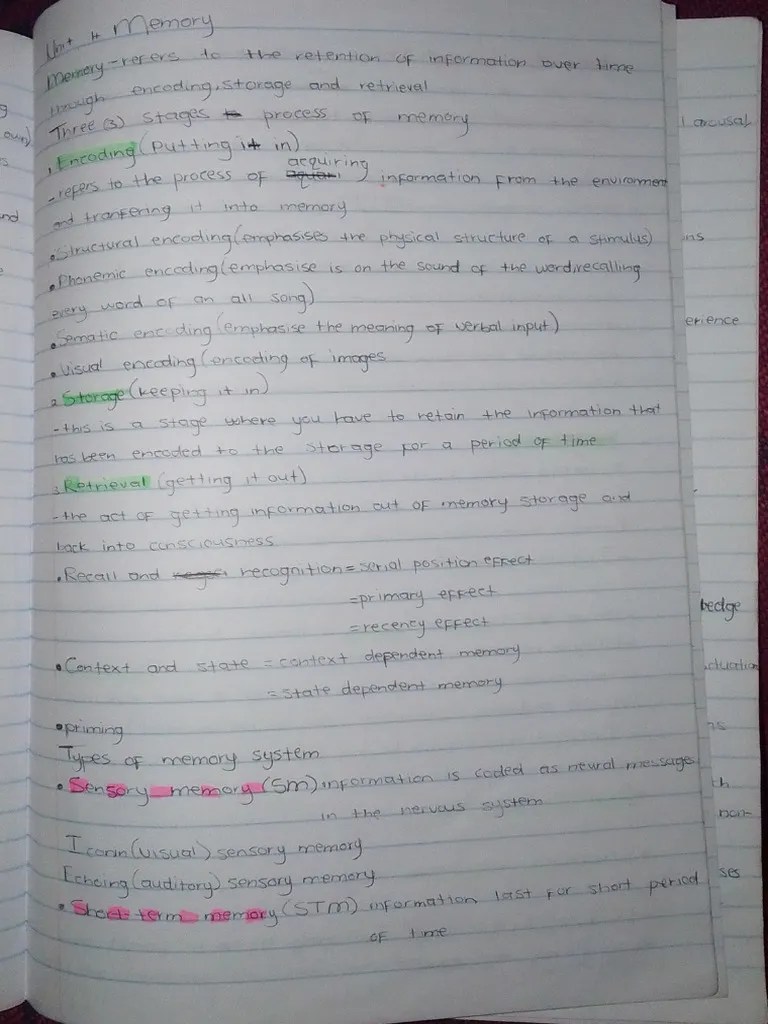 Unit 4 Memory
Memory-refers to the retention of information over time
through encoding, storage and retrieval
Three (3) stages process of memory
1. Encoding (Putting it in)
-refers to the process of acquiring information from the environment
and tranfering it into memory
•Structural encoding (emphasises the physical structure of a stimulus)
•Phonemic encoding (emphasise is on the sound of the word.recalling
every word of an all song)
•Sematic encoding (emphasise the meaning of verbal input)
•Visual encoding (encoding of images
2. Storage (keeping it in)
-this is a stage where you have to retain the information that
has been encoded to the storage for a period of time
3. Retrieval (getting it out)
-the act of getting information out of memory storage and
back into consciousness
•Recall and recognition = serial position effect
=primary effect
=recency effect
•Context and state = context dependent memory
= state dependent memory
•priming
Types of memory system
•Sensory memory (Sm) information is coded as neural message
in the nervous system
Iconin (visual) sensory memory
Echoing (auditory) sensory memory
•Short term memory (STM) information last for short period
of time